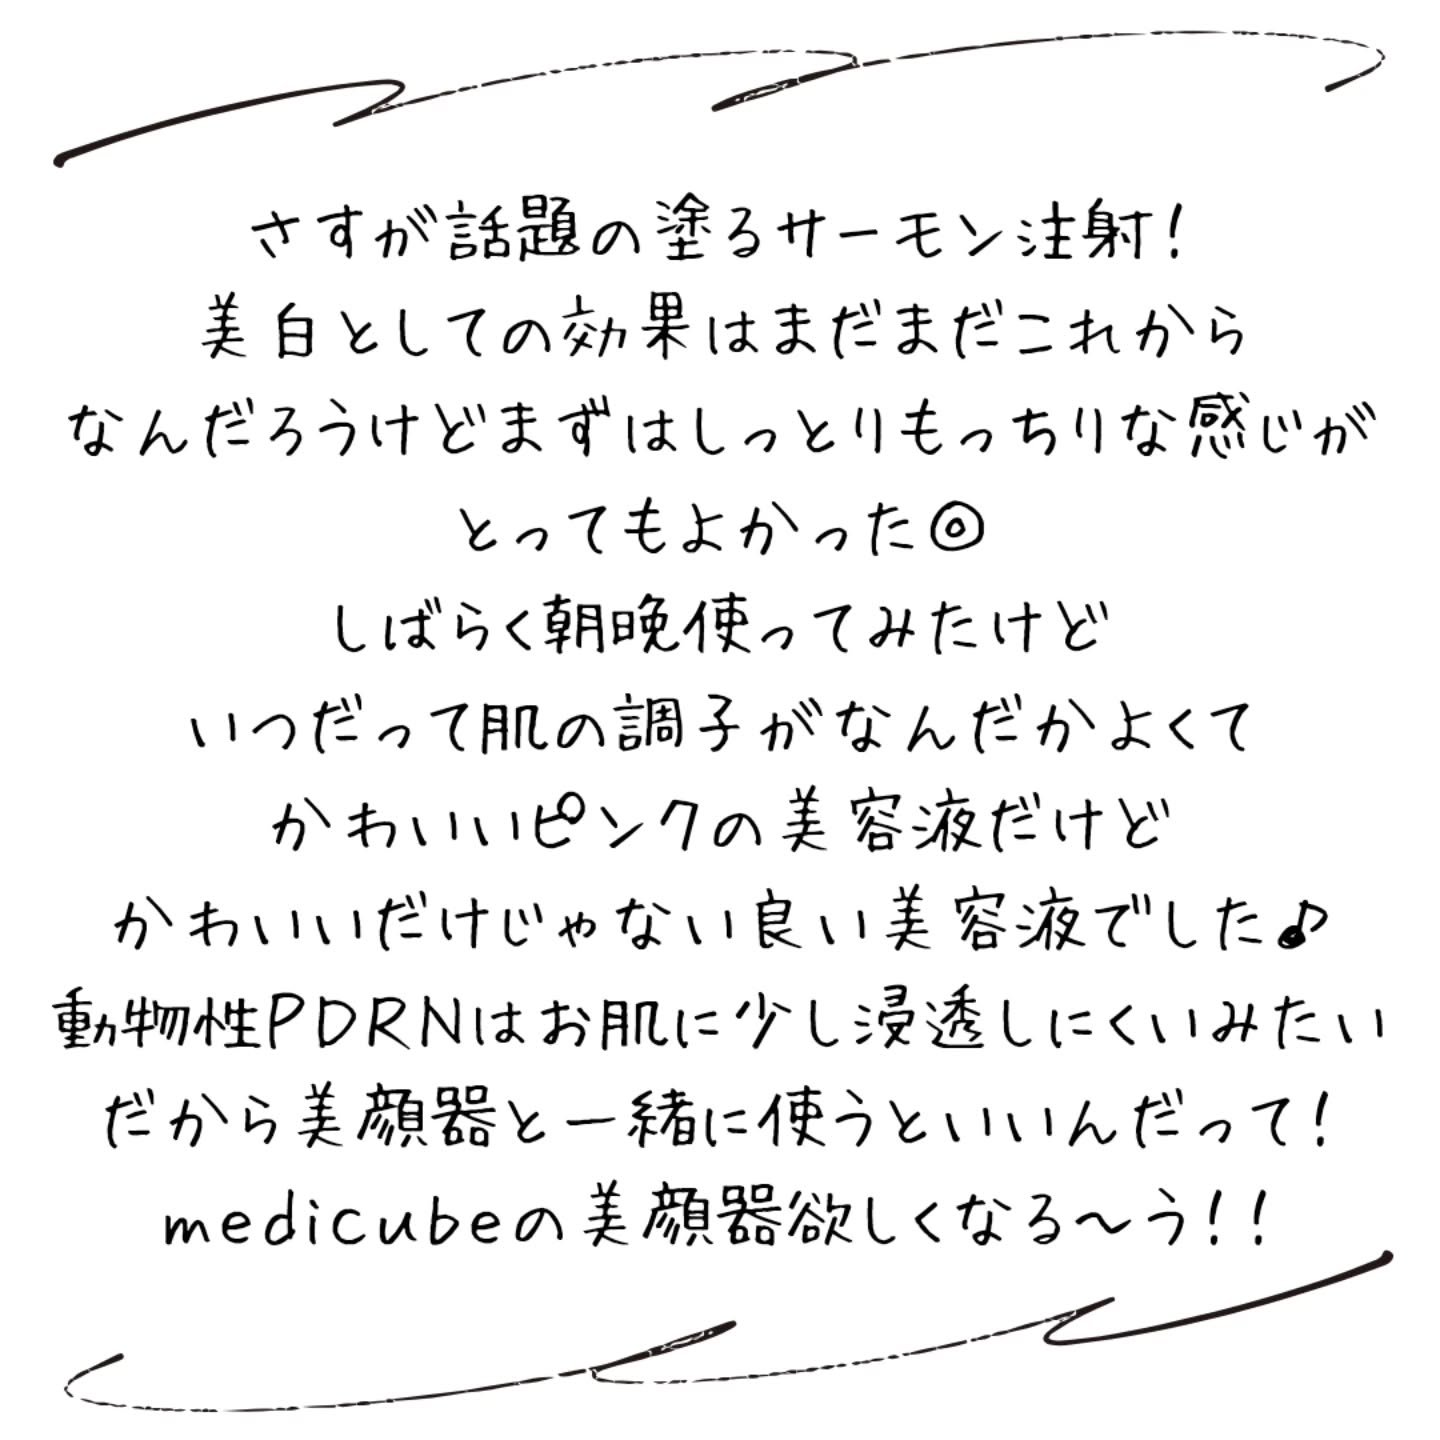 さすが話題の塗るサーモン注射!
美白としての効果はまだまだこれから
なんだろうけどまずはしっとりもっちりな感じが
とってもよかった◎
しばらく朝晩使ってみたけど
いつだって肌の調子がなんだかよくて
かわいいピンクの美容液だけど
かわいいだけじゃない良い美容液でした♪
動物性PDRNはお肌に少し浸透しにくいみたい
だから美顔器と一緒に使うといいんだって!
medicubeの美顔器欲しくなる〜う!!